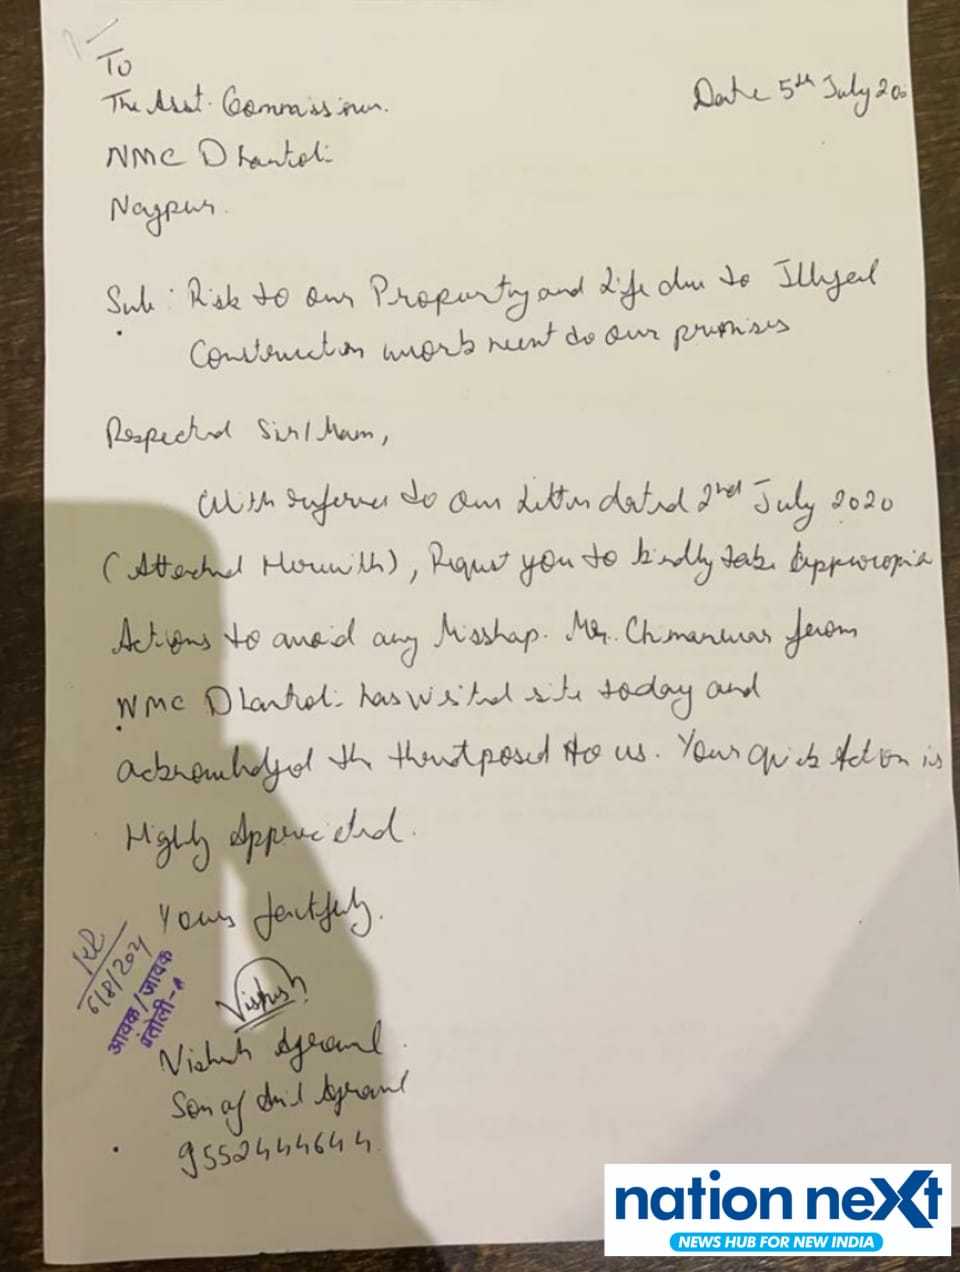 To
The Asst. Commissioner.
Date 5th July 20
NMC Dhantoli
Nagpur.
Sub: Risk to our Property and Life due to Illegal
Construction work next to our premises
Respected Sir/Mam,
With reference to our Letter dated 2nd July 2020
(Attached Herewith), Request you to kindly take appropria
Actions to avoid any Misshap. Mr. Chimanwar from
NMC Dhantoli has visited site today and
acknowledged the threat posed to us. Your quick Action is
Highly Appreciated.
Yours faithfully.
6/8/202
आवक/जावक
धंतोली-
Vishesh
Agrawal.
Son of Anil Agrawal
9552444644
nation next
NEWS HUB FOR NEW INDIA